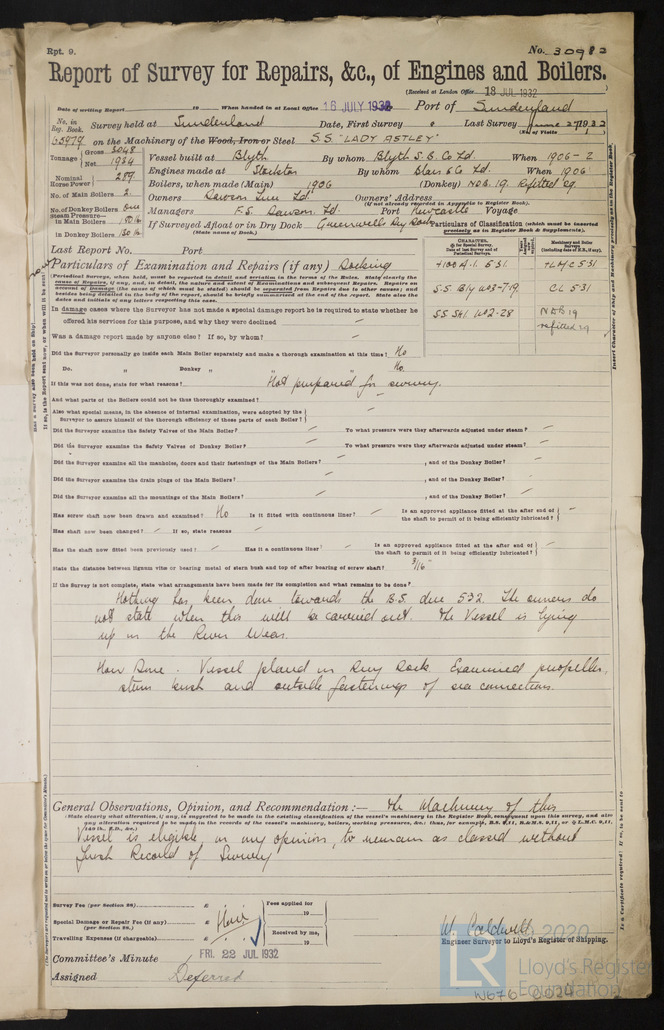 Rpt. 9.
No. 30982
Report of Survey for Repairs, &c., of Engines and Boilers.
(Received at London Office 18 JUL 1932
Date of writing Report 19 When handed in at Local Office 16 JULY 1932 Port of Sunderland
No. in Reg. Book. Survey held at Sunderland Date, First Survey Last Survey June 27 1932
(No. of Visits 1)
on the Machinery of the Wood, Iron or Steel S.S. "LADY ASTLEY"
Tonnage Gross 3048 Net 1934 Vessel built at Blyth By whom Blyth S.B. Co Ld. When 1906-2
Nominal Horse Power 289 Engines made at Stockton By whom Blair & Co Ld. When 1906
No. of Main Boilers 2 Boilers, when made (Main) 1906 (Donkey) NDB. 19. Refitted 29.
No. of Donkey Boilers One Owners Dawson Line Ld. Owners' Address
(if not already recorded in Appendix to Register Book).
Steam Pressure— in Main Boilers Managers F.S. Dawson. Ld. Port Newcastle Voyage
in Donkey Boilers If Surveyed Afloat or in Dry Dock Greenwells Dry Dock
(State name of Dock.)
Particulars of Classification (which must be inserted precisely as in Register Book & Supplements).
Last Report No. Port
Particulars of Examination and Repairs (if any) Docking
(Periodical Surveys, when held, must be reported in detail and seriatim in the terms of the Rules. State clearly the cause of Repairs, if any, and, in detail, the nature and extent of Examinations and subsequent Repairs. Repairs on account of Damage (the cause of which must be stated) should be separated from Repairs due to other causes; and besides being detailed in the body of the report, should be briefly summarised at the end of the report. State also the dates and initials of any letters respecting this case.
CHARACTER.
Machinery and Boiler Surveys
+100A.1. 5.31. +LMC 5.31
S.S. Bly No3-7.19. CL 5.31
S.S. Shl. No2-28 NDB 19
refitted 29
In damage cases where the Surveyor has not made a special damage report he is required to state whether he
offered his services for this purpose, and why they were declined
Was a damage report made by anyone else? If so, by whom?
Did the Surveyor personally go inside each Main Boiler separately and make a thorough examination at this time? No
Do. " Donkey " " No.
If this was not done, state for what reasons? Not prepared for survey.
And what parts of the Boilers could not be thus thoroughly examined?
Also what special means, in the absence of internal examination, were adopted by the Surveyor to assure himself of the thorough efficiency of those parts of each Boiler?
Did the Surveyor examine the Safety Valves of the Main Boiler? To what pressure were they afterwards adjusted under steam?
Did the Surveyor examine the Safety Valves of Donkey Boiler? To what pressure were they afterwards adjusted under steam?
Did the Surveyor examine all the manholes, doors and their fastenings of the Main Boilers? , and of the Donkey Boiler?
Did the Surveyor examine the drain plugs of the Main Boilers? , and of the Donkey Boiler?
Did the Surveyor examine all the mountings of the Main Boilers? , and of the Donkey Boiler?
Has screw shaft now been drawn and examined? No Is it fitted with continuous liner? Is an approved appliance fitted at the after end of the shaft to permit of it being efficiently lubricated?
Has shaft now been changed? If so, state reasons
Has the shaft now fitted been previously used? Has it a continuous liner? Is an approved appliance fitted at the after end of the shaft to permit of it being efficiently lubricated?
State the distance between lignum vitæ or bearing metal of stern bush and top of after bearing of screw shaft? 3/16"
If the Survey is not complete, state what arrangements have been made for its completion and what remains to be done?
Nothing has been done towards the B.S. due 5.32. The owners do
not state when this will be carried out. The Vessel is lying
up in the River Wear.
Now Done. Vessel placed in Dry Dock. Examined propeller,
stern bush and outside fastenings of sea connections.
General Observations, Opinion, and Recommendation:— The Machinery of this
(State clearly what alteration, if any, is suggested to be made in the existing classification of the vessel's machinery in the Register Book, consequent upon this survey, and also any alteration required to be made in the records of the vessel's machinery, boilers, working pressures, &c.: thus, for example,
Vessel is eligible in my opinion, to remain as classed without
fresh Record of Survey
Survey Fee (per Section 29) £
Special Damage or Repair Fee (if any) (per Section 29.) £
Travelling Expenses (if chargeable) £
Fees applied for
19
Received by me,
19
W. Caldwell
Engineer Surveyor to Lloyd's Register of Shipping.
Committee's Minute FRI. 22 JUL 1932
Assigned Deferred
2020
LR
Lloyd's Register
Foundation
W676-0024